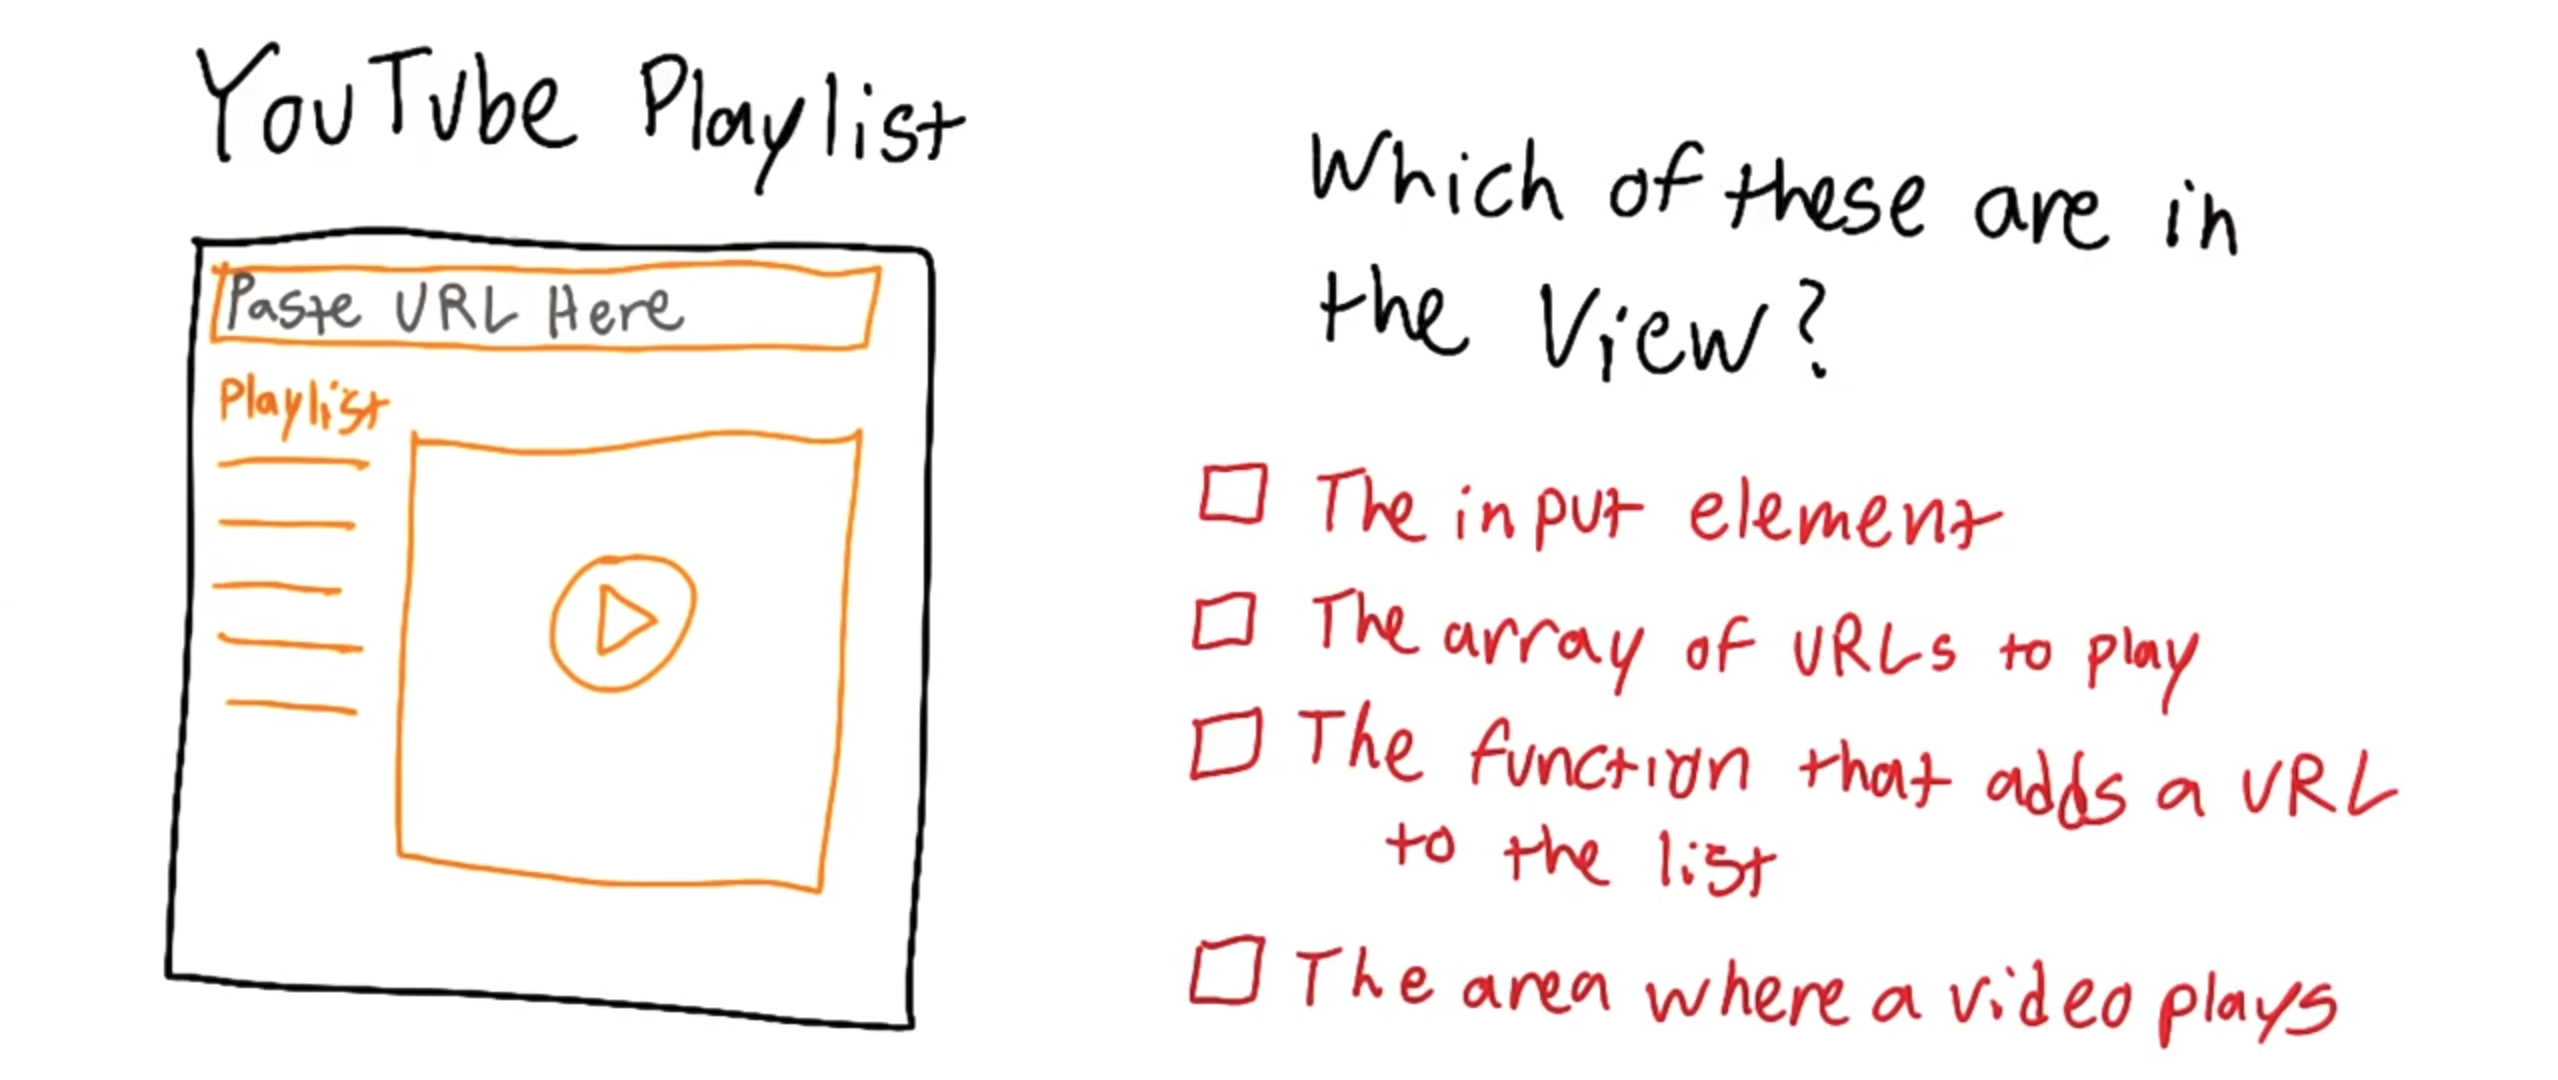 YouTube Playlist
Paste URL Here
Playlist
Which of these are in
the View?
The input element
The array of URLs to play
The function that adds a URL
to the list
The area where a video plays